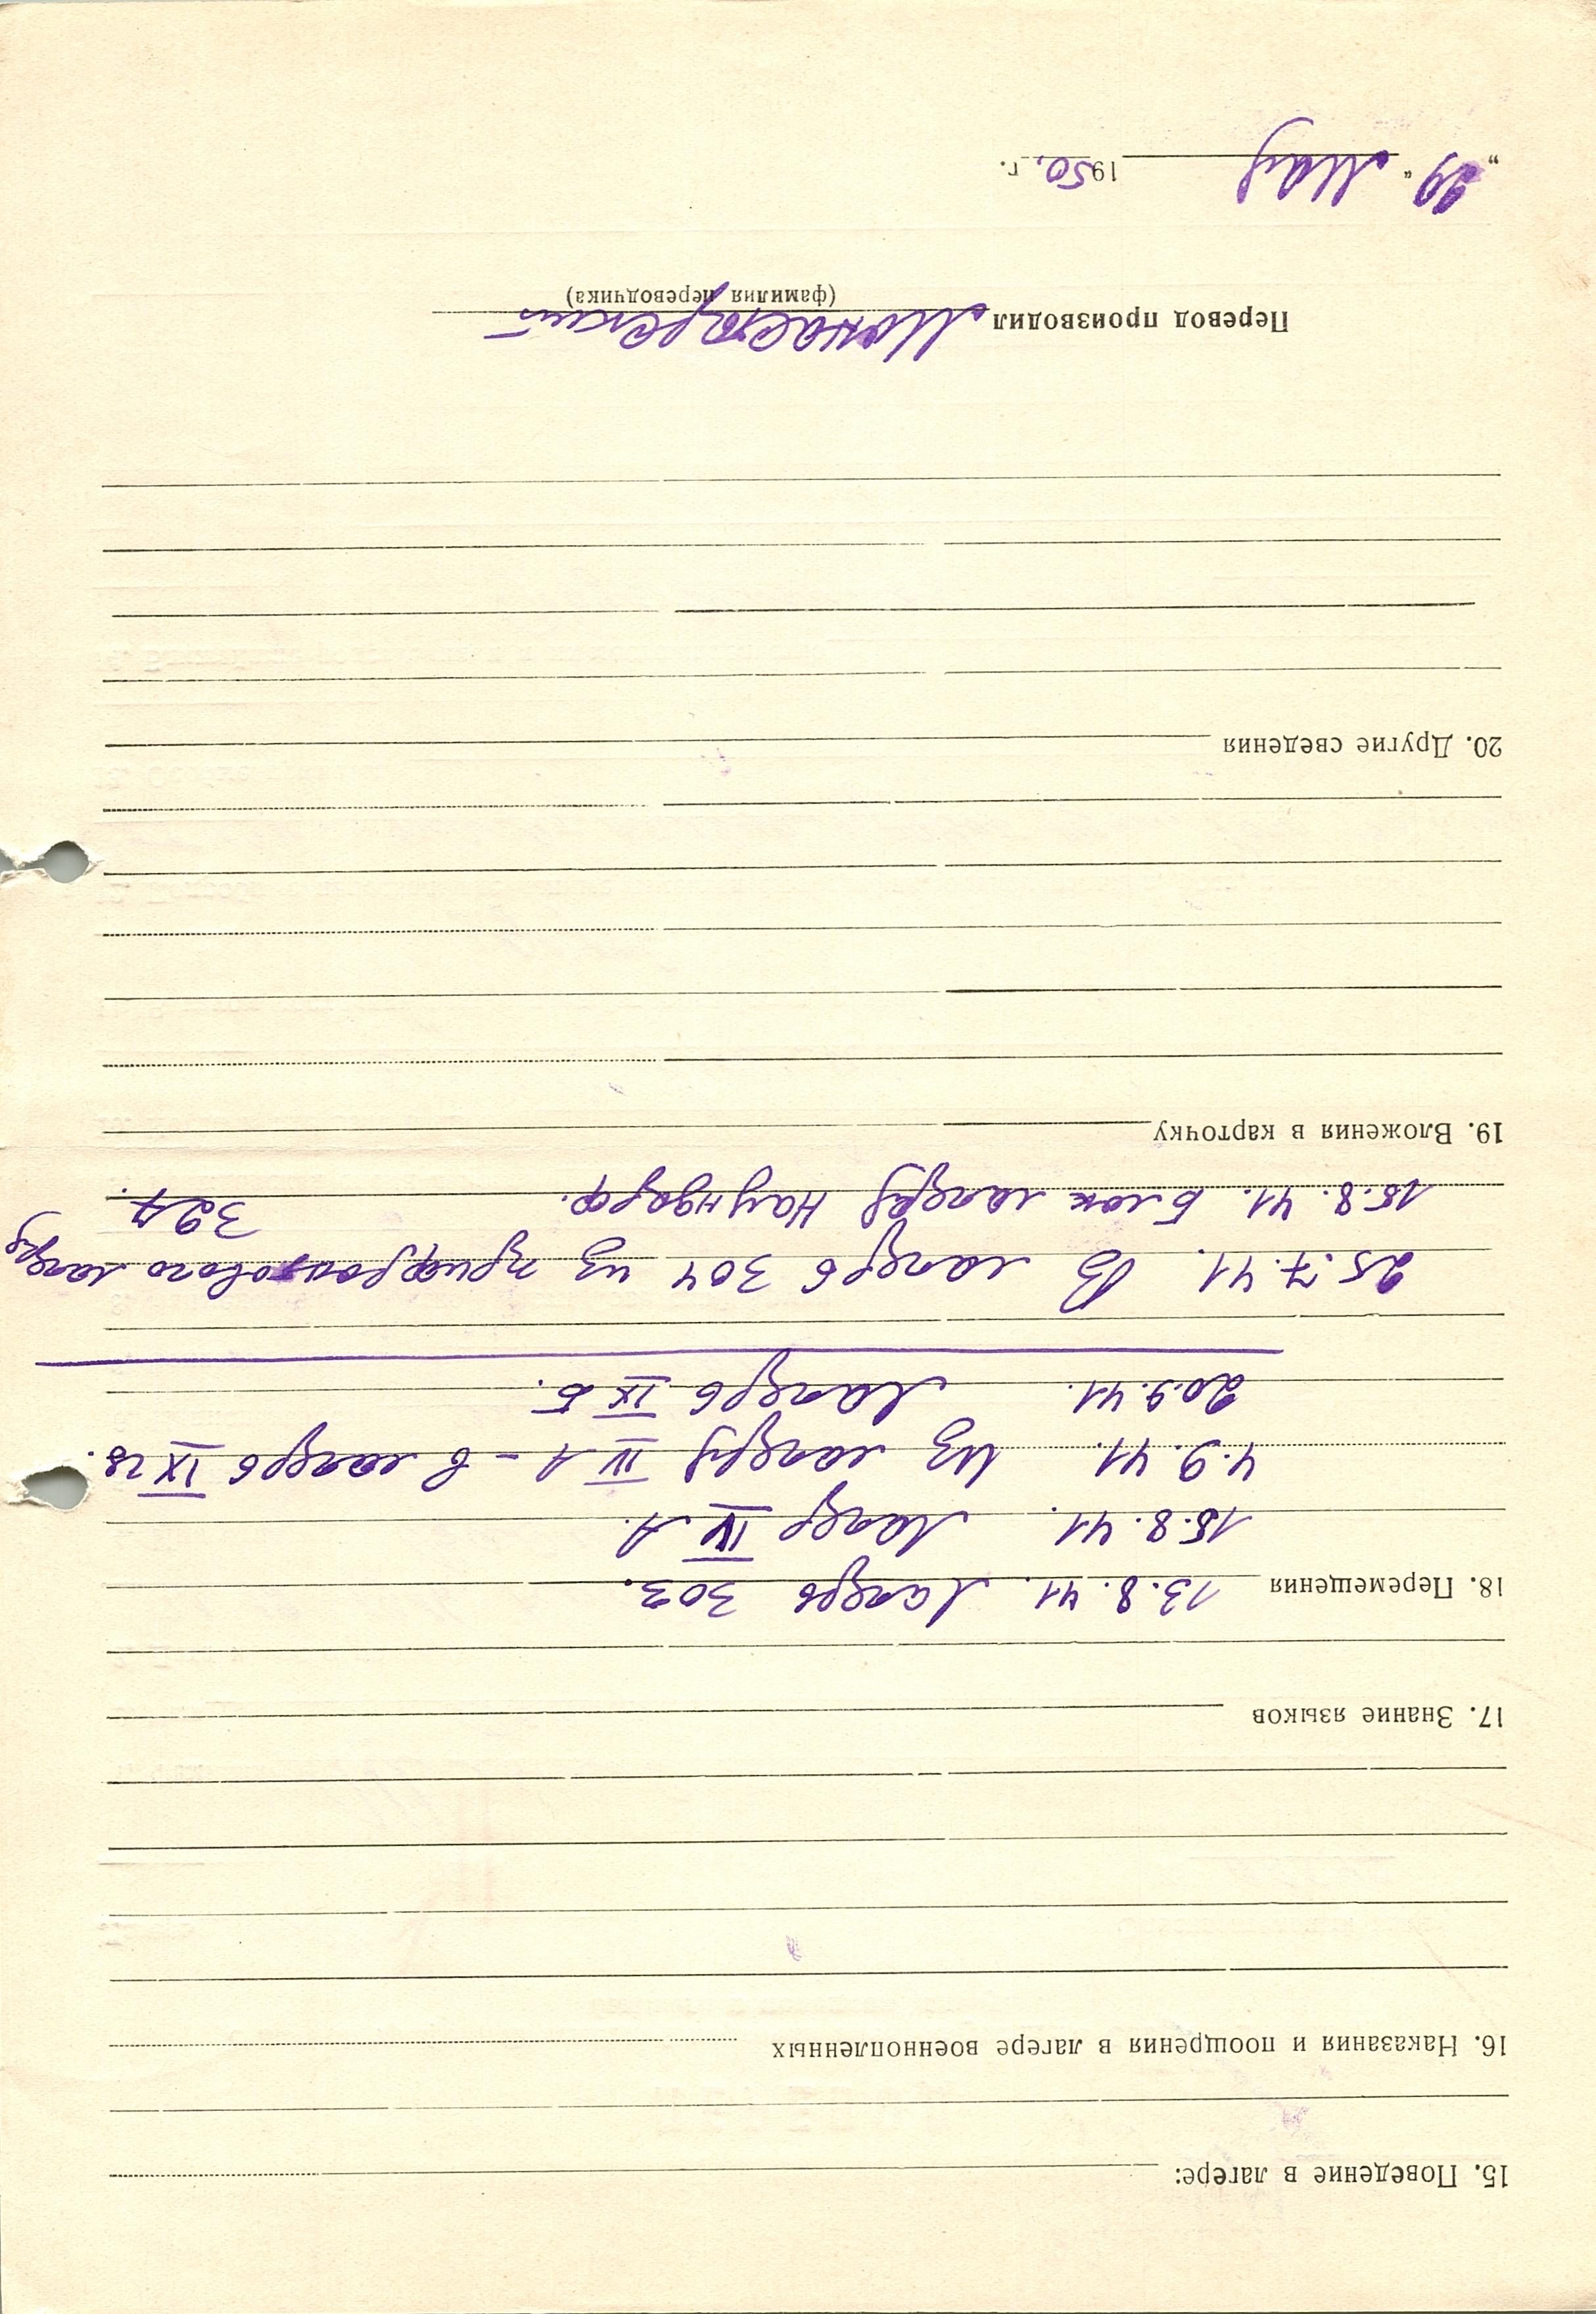 15. Поведение в лагере:
16. Наказания и поощрения в лагере военнопленных
17. Знание языков
18. Перемещения 13.8.41. Лагерь 303.
15.8.41. Лагер IV А.
4.9.41. Из лагеря IV А – в лагерь IX
20.9.41. Лагерь IX Б.
25.7.41. В лагерь 304 из прифронтового лагеря
15.8.41. Блок лагеря Наундорф.
19. Вложения в карточку
20. Другие сведения
Перевод производил Монастырский
(фамилия переводчика)
„29“ Мая 1950 г.